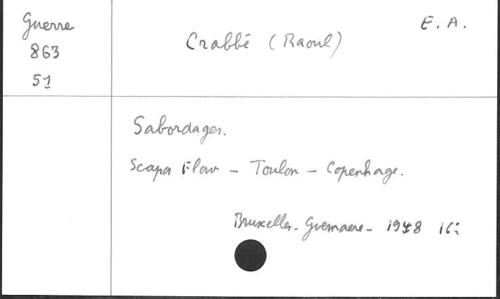 Guerre
863
51
Crabbé (Raoul)
E. A.
Sabordages.
Scapa Flow - Toulon - Copenhage.
Bruxelles - Gremaere -